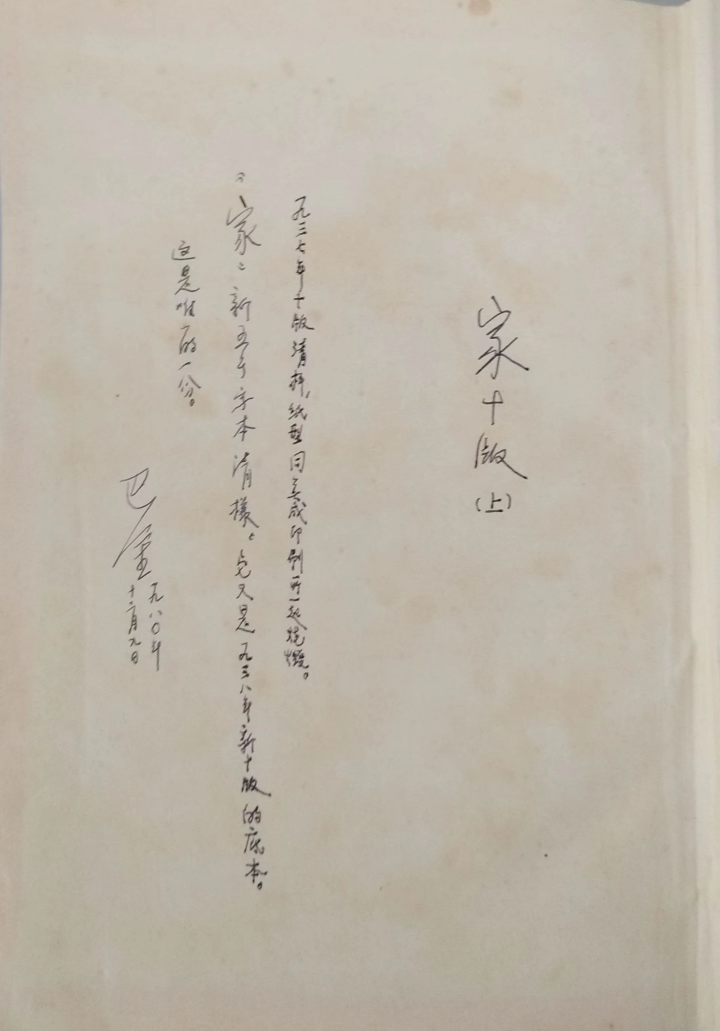 家十版
（上）
一九三七年十版清样，纸型同美成印刷所一起烧燬。
《家》新五号字本清樣。它又是一九三八年新十版的底本。
这是唯一的一份。
巴金
一九八〇年
十二月九日